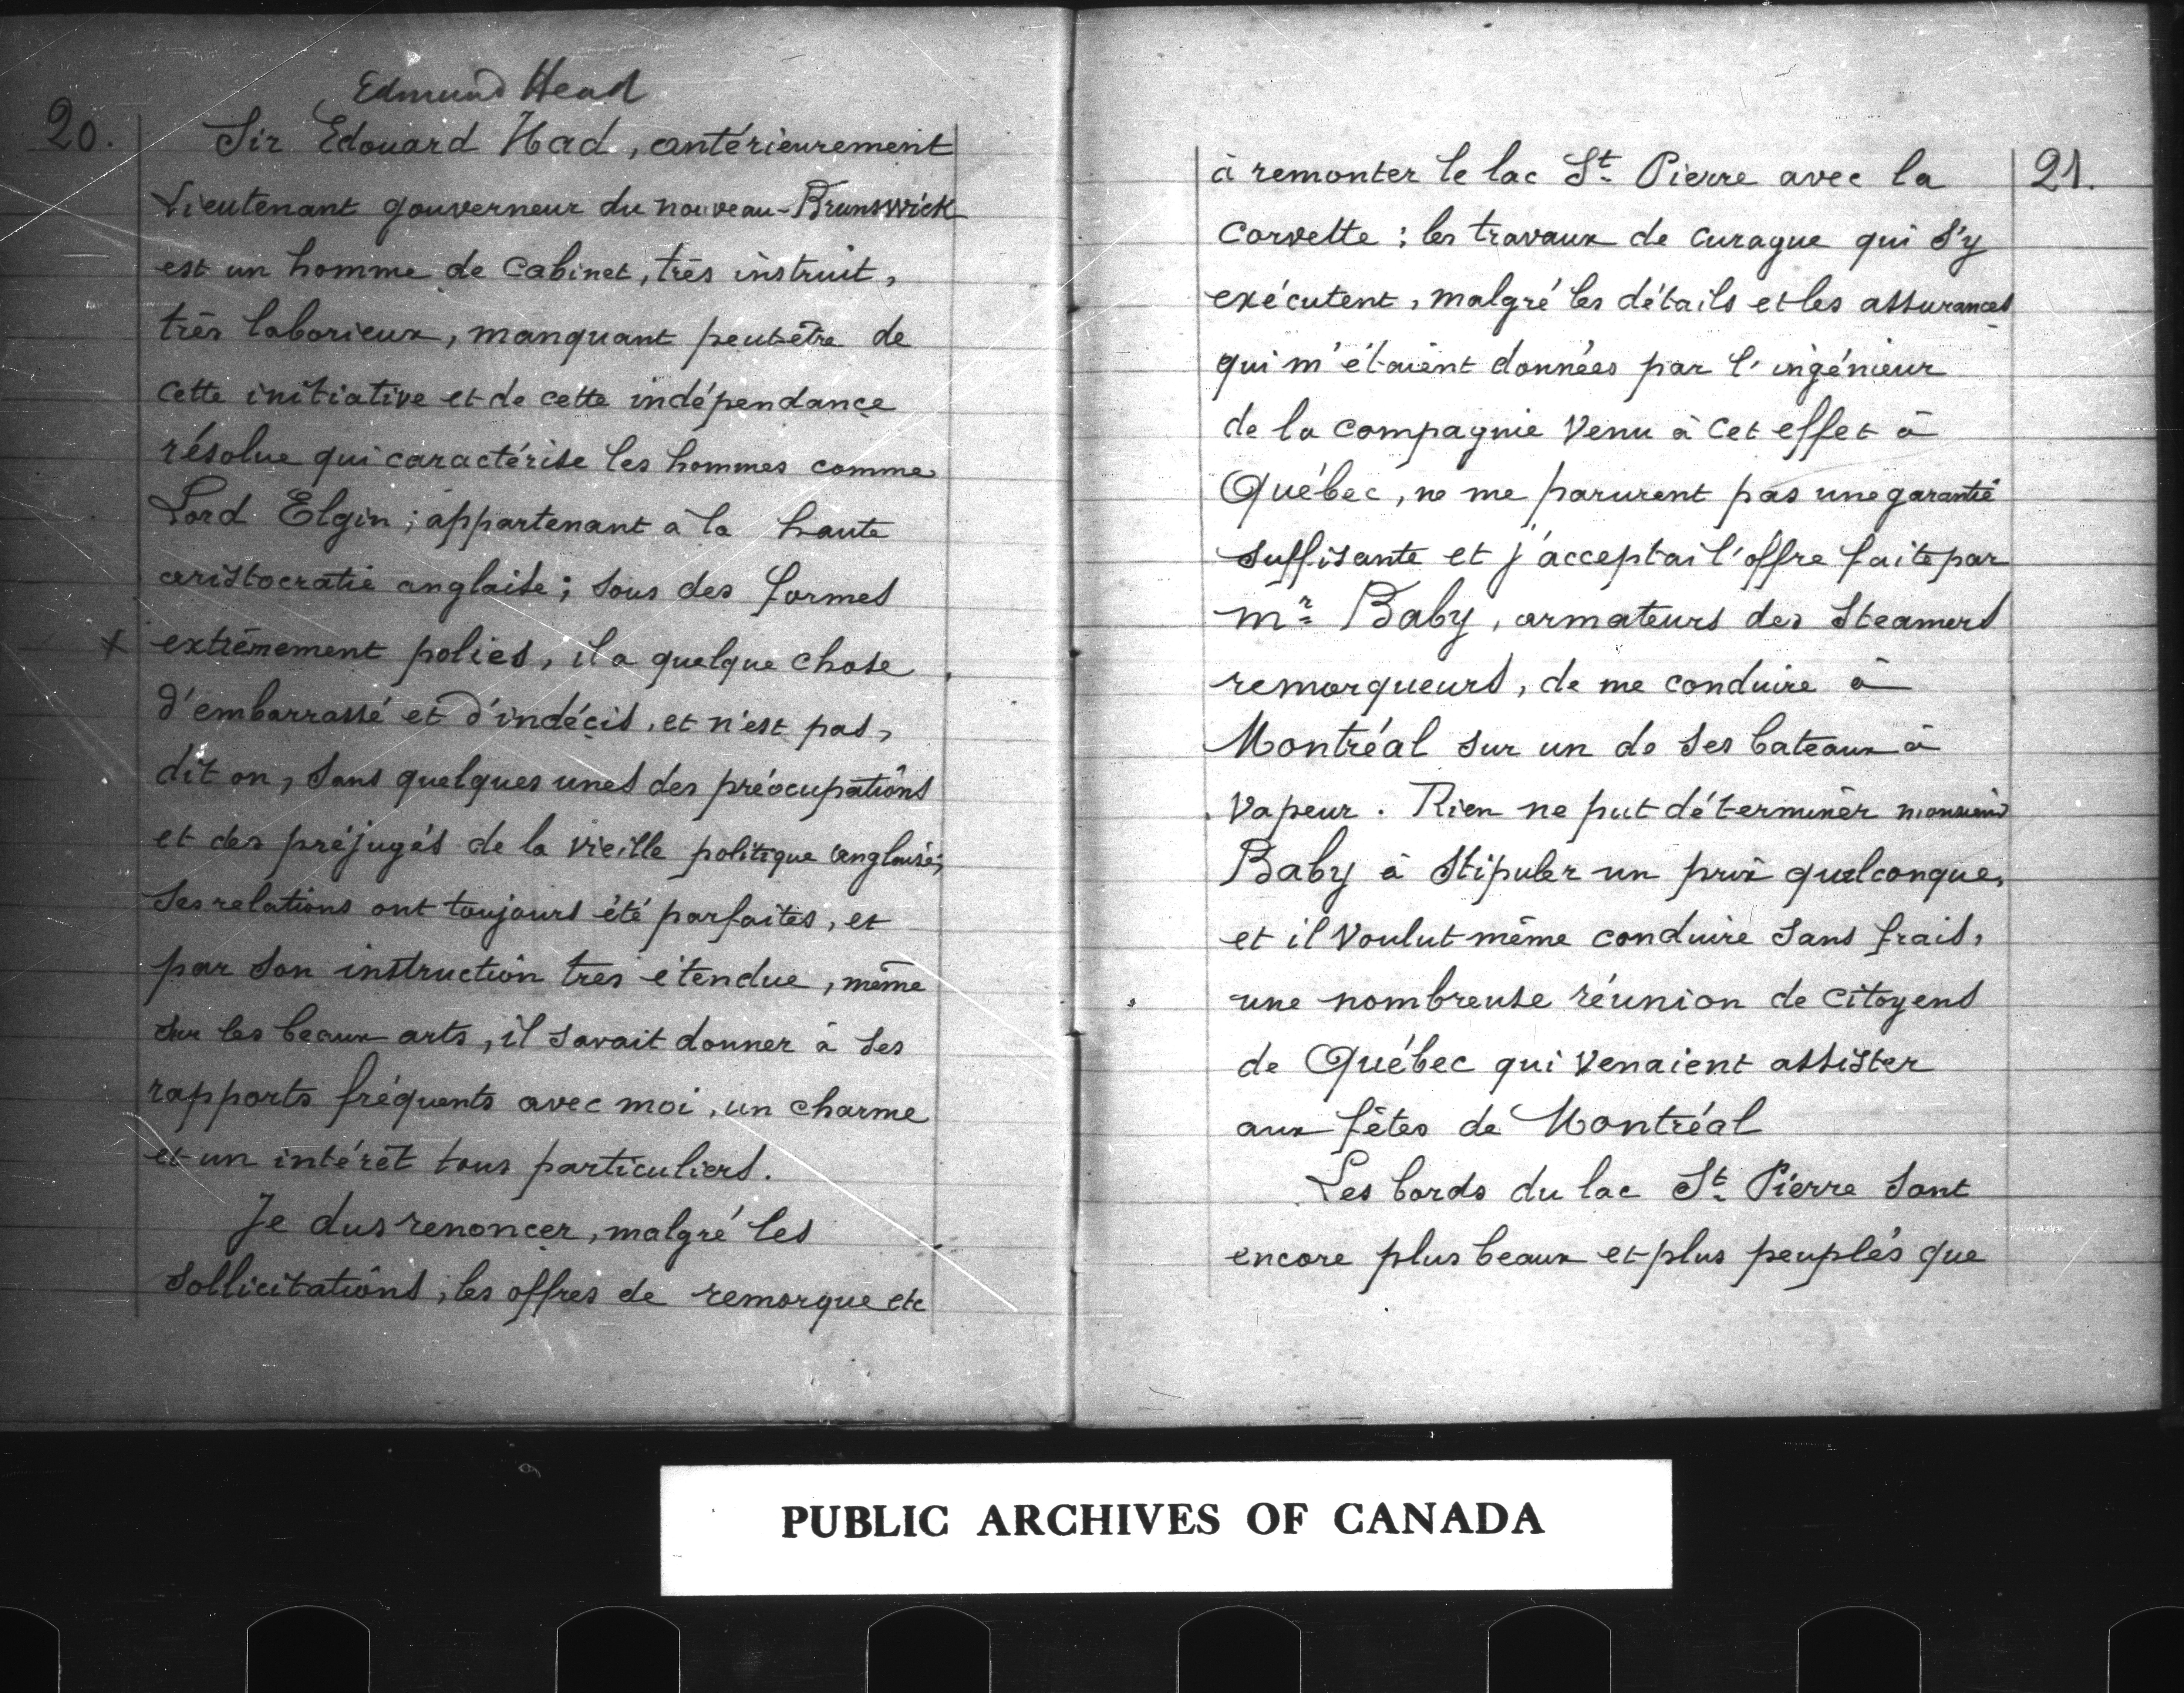 Edmund Head
20.
Sir Edouard Had, antérieurement
Lieutenant gouverneur du nouveau-Brunswick
est un homme de Cabinet, très instruit,
très laborieux, manquant peut-être de
cette initiative et de cette indépendance
résolue qui caractérise les hommes comme
Lord Elgin; appartenant à la haute
aristocratie anglaise; sous des formes
x extrêmement polies, il a quelque chose
d'embarrassé et d'indécis, et n'est pas,
dit on, sans quelques unes des préocupations
et des préjugés de la vieille politique anglaise;
Ses relations ont toujours été parfaites, et
par son instruction très étendue, même
sur les beaux arts, il savait donner à ses
rapports fréquents avec moi, un charme
et un intérêt tous particuliers.
Je dus renoncer, malgré les
sollicitations, les offres de remorque etc
21.
à remonter le lac St. Pierre avec la
Corvette : les travaux de curague qui s'y
exécutent, malgré les détails et les assurances
qui m'étaient données par l'ingénieur
de la compagnie venu à cet effet à
Québec, ne me parurent pas une garantie
suffisante et j'acceptai l'offre faite par
mr. Baby, armateurs des Steamers
remorqueurs, de me conduire à
Montréal sur un de ses bateaux à
vapeur. Rien ne put déterminer monsieur
Baby à stipuler un prix quelconque,
et il voulut même conduire sans frais,
une nombreuse réunion de citoyens
de Québec qui venaient assister
aux fêtes de Montréal
Les bords du lac St. Pierre sont
encore plus beaux et plus peuplés que
PUBLIC ARCHIVES OF CANADA